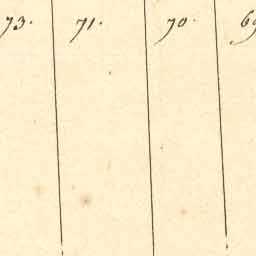 73. 71. 70. 69